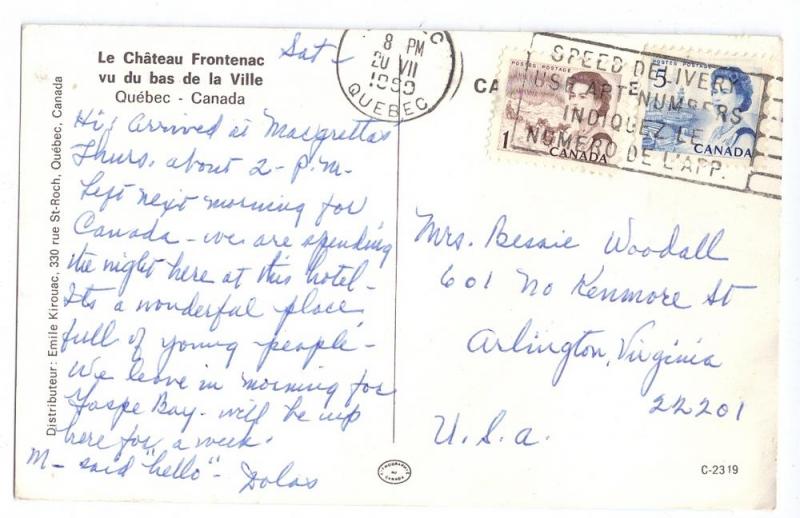 Le Château Frontenac
vu du bas de la Ville
Québec - Canada
Sat-
8 PM
20 VII
QUEBEC
SPEED DELIVERY
USE APT NUMBERS
INDIQUEZ LE
NUMERO DE L'APP.
POSTES POSTAGE
1
CANADA
POSTES POSTAGE
5
CANADA
Hi, Arrived at Macgrettas
Thurs. about 2- P.M-
Left next morning for
Canada - we are spending
the night here at this hotel-
Its a wonderful place,
full of young people -
We leave in morning for
Gaspe Bay - will be up
here for a week.
M- said "hello" - Dolas
Mrs. Bessie Woodall
601 No Kenmore St
Arlington, Virginia
22201
U.S.A.
Distributeur: Emile Kirouac, 330 rue St-Roch, Québec, Canada
C-2319